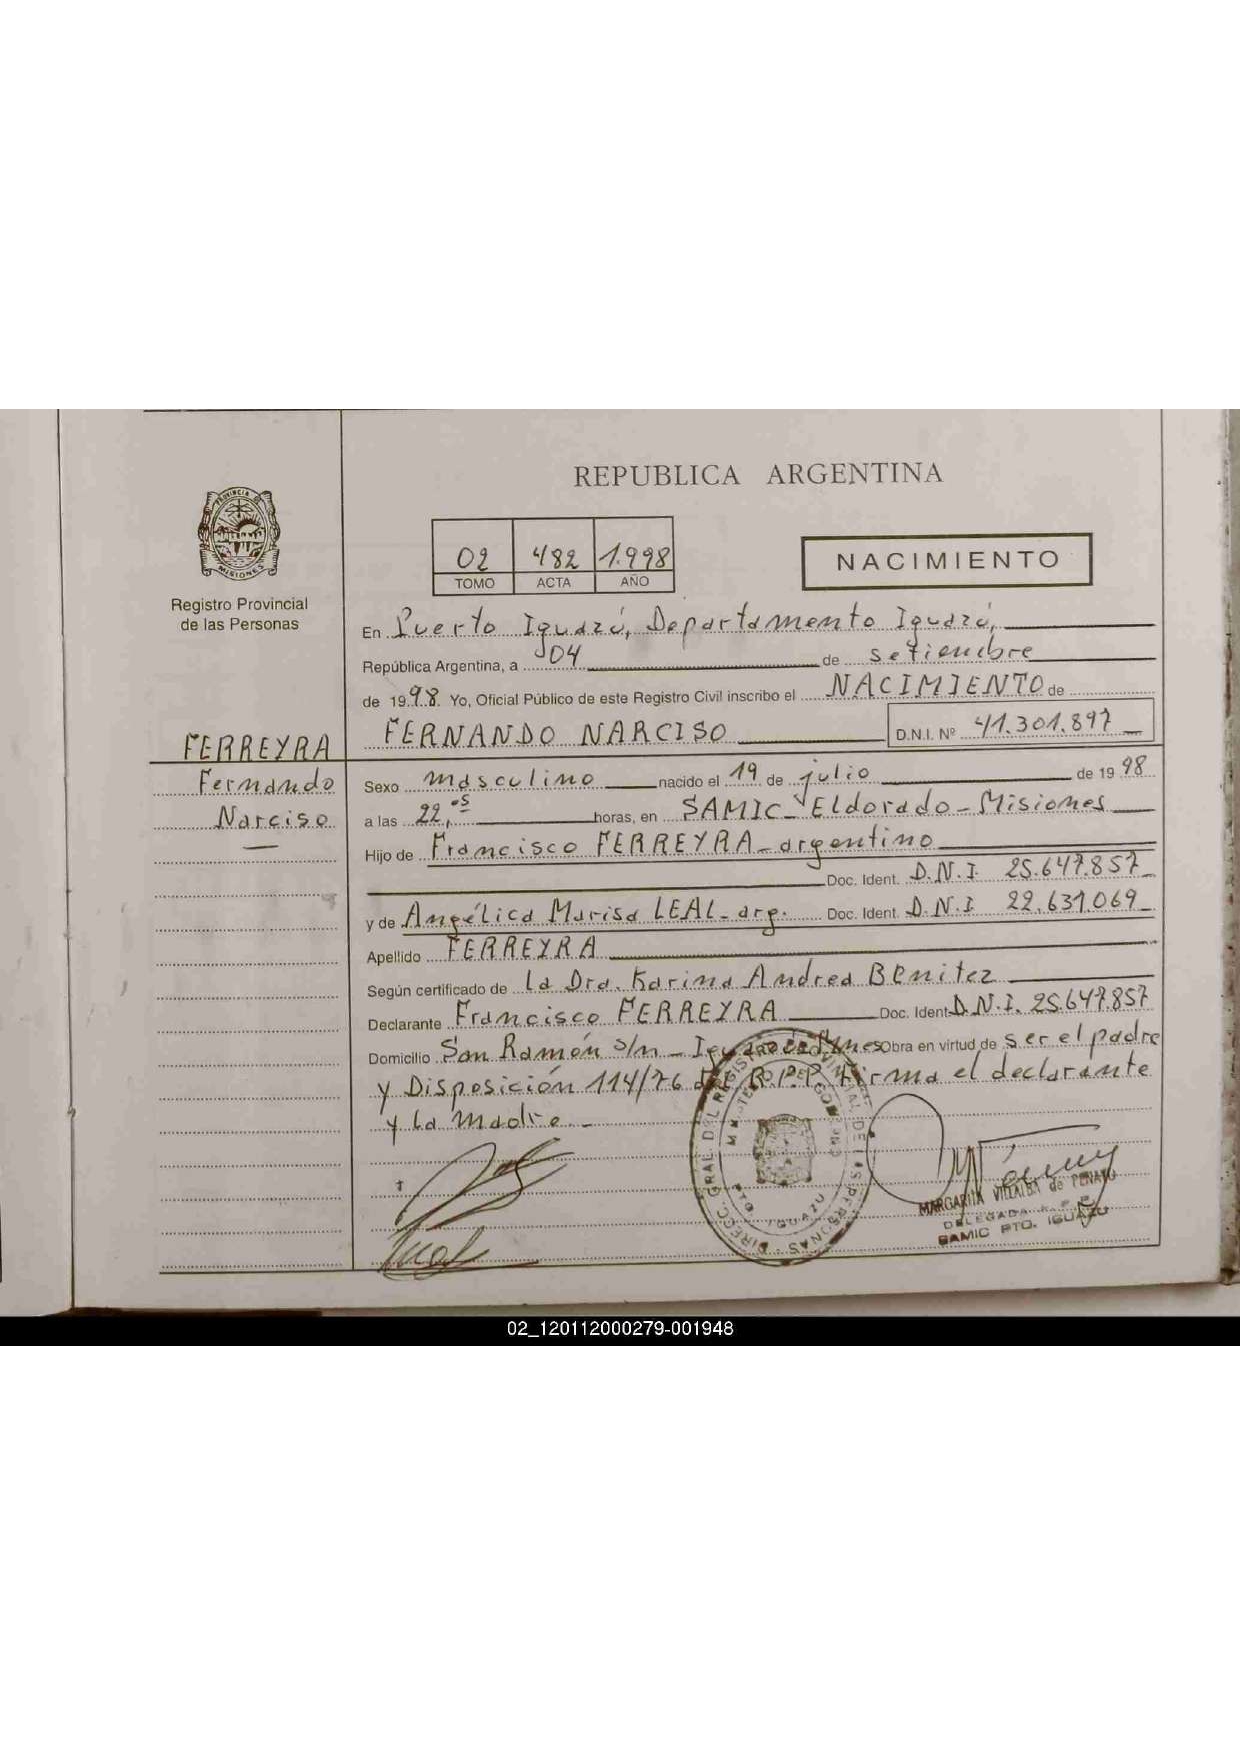 REPUBLICA ARGENTINA
PROVINCIA DE
MISIONES
Registro Provincial
de las Personas
02 482 1.998
TOMO ACTA AÑO
NACIMIENTO
En Puerto Iguazú, Departamento Iguazú,
República Argentina, a 04 de setiembre
de 1998. Yo, Oficial Público de este Registro Civil inscribo el NACIMIENTO de
FERNANDO NARCISO D.N.I. Nº 41.301.897
FERREYRA
Fernando
Narciso
Sexo masculino nacido el 19 de julio de 1998
a las 22,os horas, en SAMIC - Eldorado - Misiones
Hijo de Francisco FERREYRA - argentino
Doc. Ident. D.N.I. 25.647.857
y de Angélica Marisa LEAL - arg. Doc. Ident. D.N.I 22.631.069
Apellido FERREYRA
Según certificado de la Dra. Karina Andrea BEnitez
Declarante Francisco FERREYRA Doc. Ident. D.N.I. 25.647.857
Domicilio San Ramón s/n - Obra en virtud de ser el padre
y Disposición 114/76 del R.P.P. Firma el declarante
y la madre -
DIREC. GRAL. DEL REGISTRO PROVINCIAL DE LAS PERSONAS
MINISTERIO DE GOBIERNO
PTO. IGUAZU
MARGARITA VILLALBA de
DELEGADA R. P. P.
SAMIC PTO. IGUAZU
02_120112000279-001948